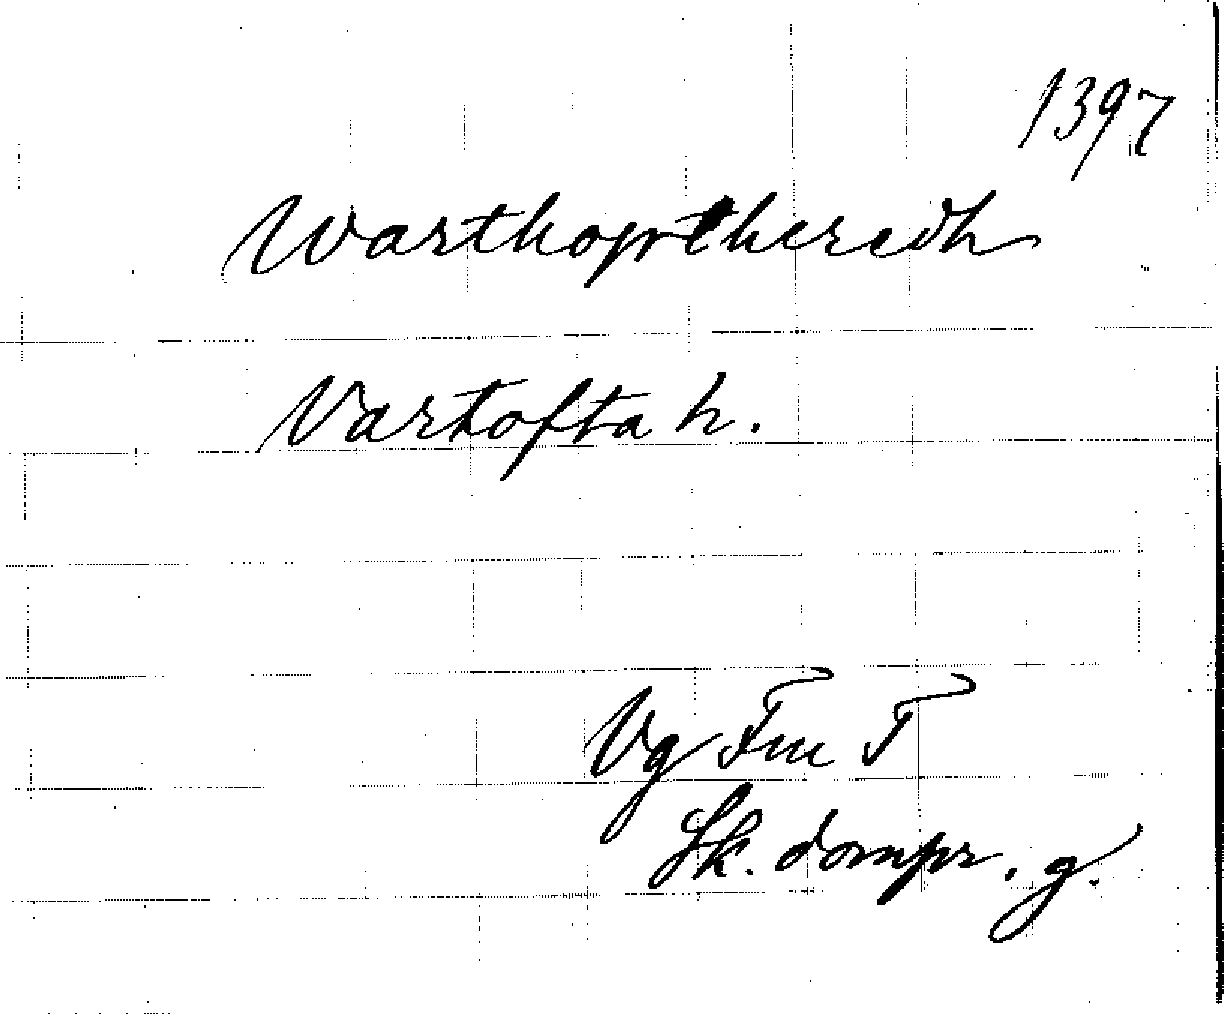 1397
Warthoptheredh
Vartofta h.
Vg Fm T
Sk. dompr. g.